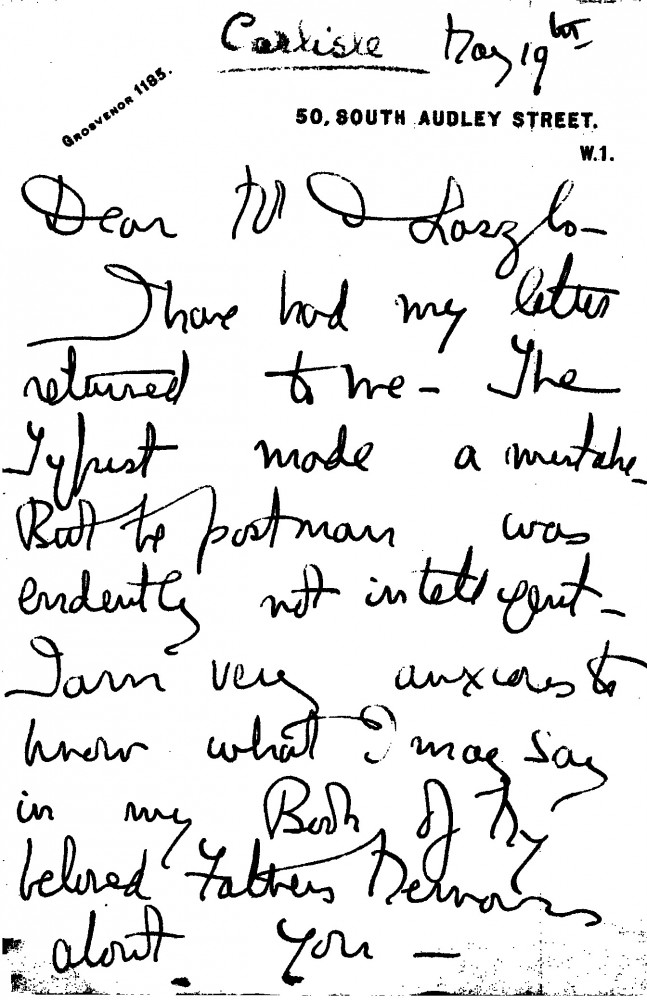 Carlisle May 19th
GROSVENOR 1185.
50, SOUTH AUDLEY STREET.
W.1.
Dear M de Laszlo –
I have had my letter
returned to me – The
Typist made a mistake
But the postman was
evidently not intelligent –
I am very anxious to
know what I may say
in my Book of My
beloved Fathers Memoirs
about you –